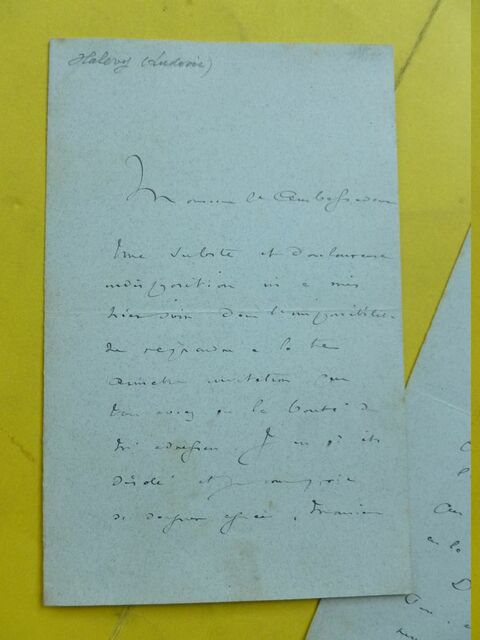 Halevy (Ludovic)
Monsieur le Ambassadeur
Une subite et douloureuse
indisposition m'a mis
hier soir dans l'impossibilité
de répondre à la très
aimable invitation que
vous avez eu la bonté de
m'adresser. J'en ai été
désolé et je vous prie
de daigner agréer, Monsieur